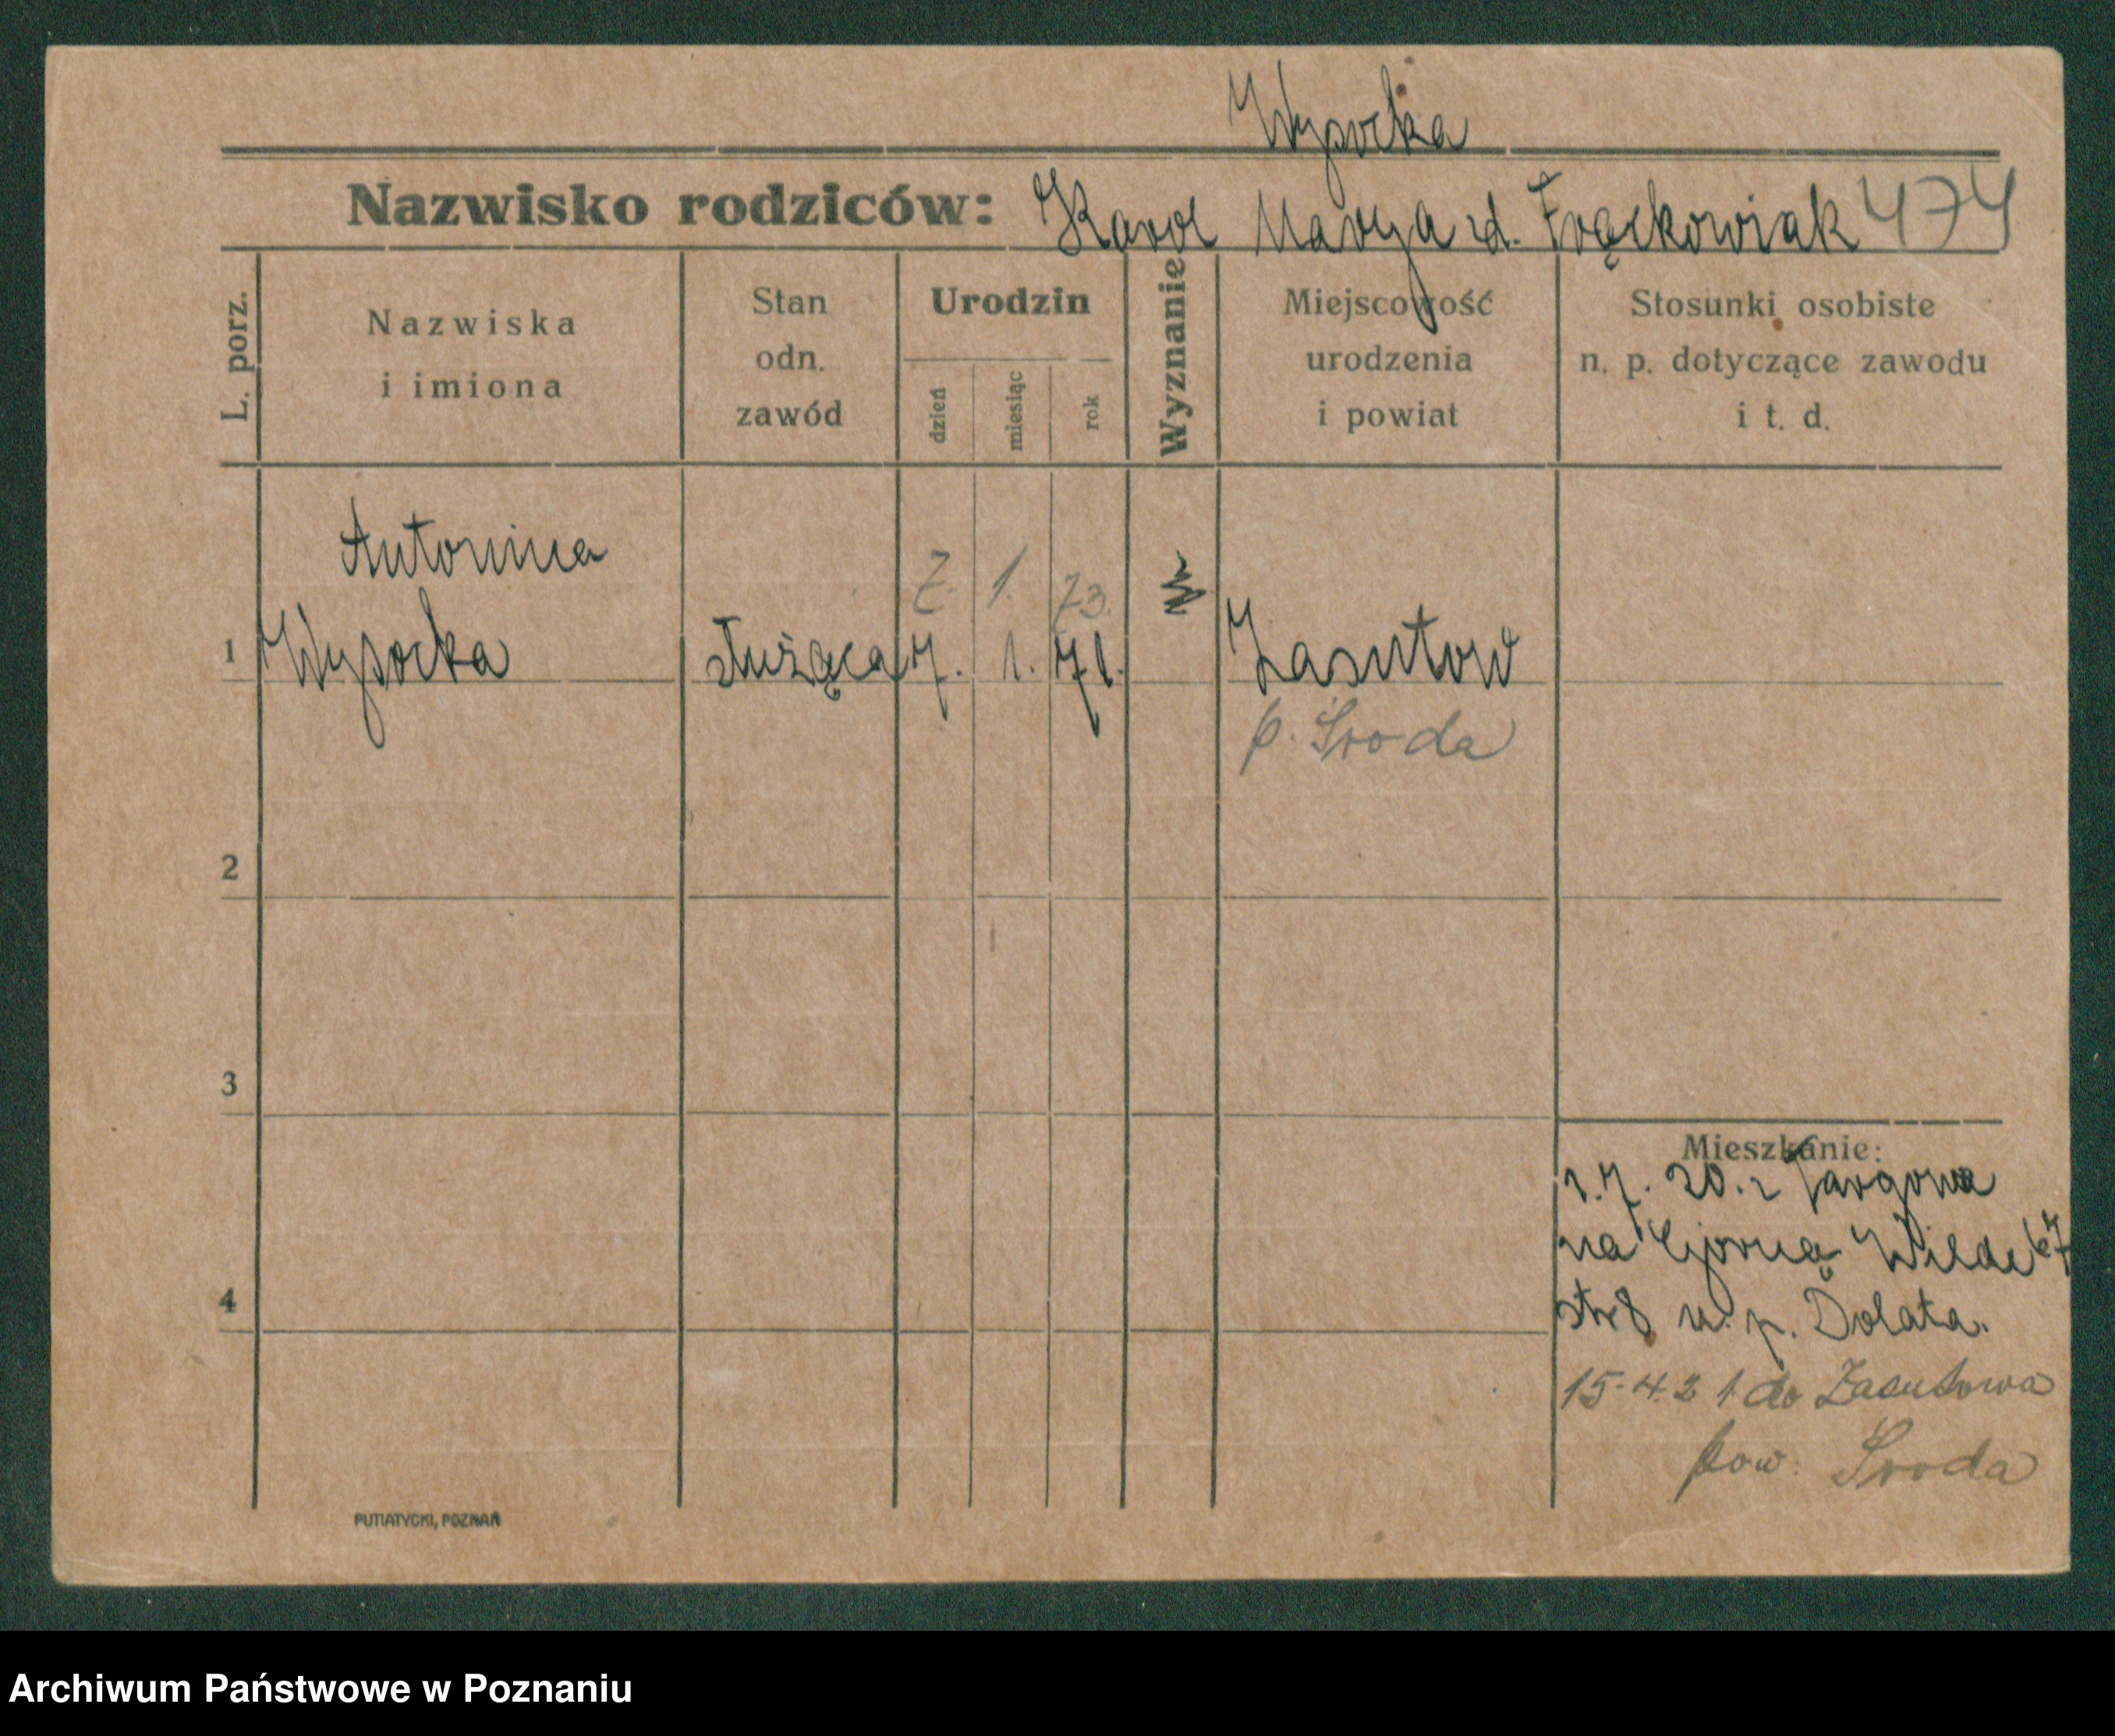 Wysocka
Nazwisko rodziców: Karol Marya zd. Frąckowiak 474
L. porz.
Nazwiska i imiona
Stan odn. zawód
Urodzin
dzień
miesiąc
rok
Wyznanie
Miejscowość urodzenia i powiat
Stosunki osobiste n. p. dotyczące zawodu i t. d.
Antonina
7. 1. 73.
1 Wysocka służąca 7. 1. 71. Zasutow
p. Środa
2
3
Mieszkanie:
1.7. 20. z Targowa
na Górną Wilde 67
4
str 8 u. p. Dolata.
15.4.21. do Zasutowa
pow. Środa
PUTIATYCKI, POZNAŃ
Archiwum Państwowe w Poznaniu